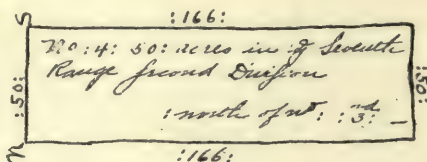 :166:
S
No:4: 50: acres in ye Seventh
Range Second Division
: north of no: :3:nd _
:50:
:50:
N
:166: